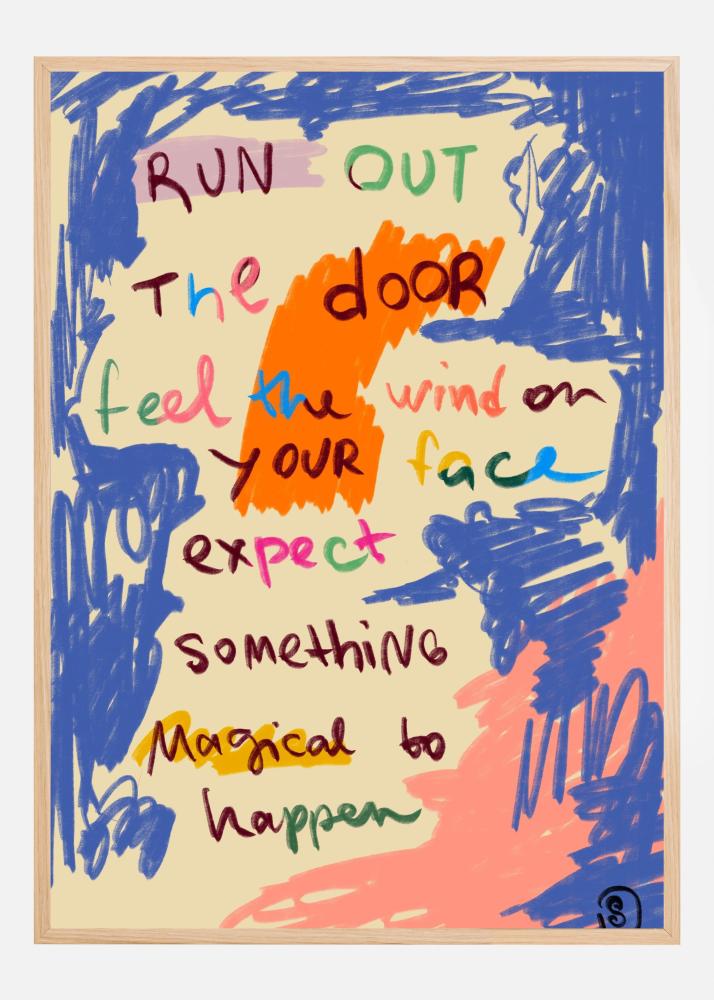 RUN OUT
The dOOR
feel the wind on
YOUR face
expect
somethiNG
Magical to
happen